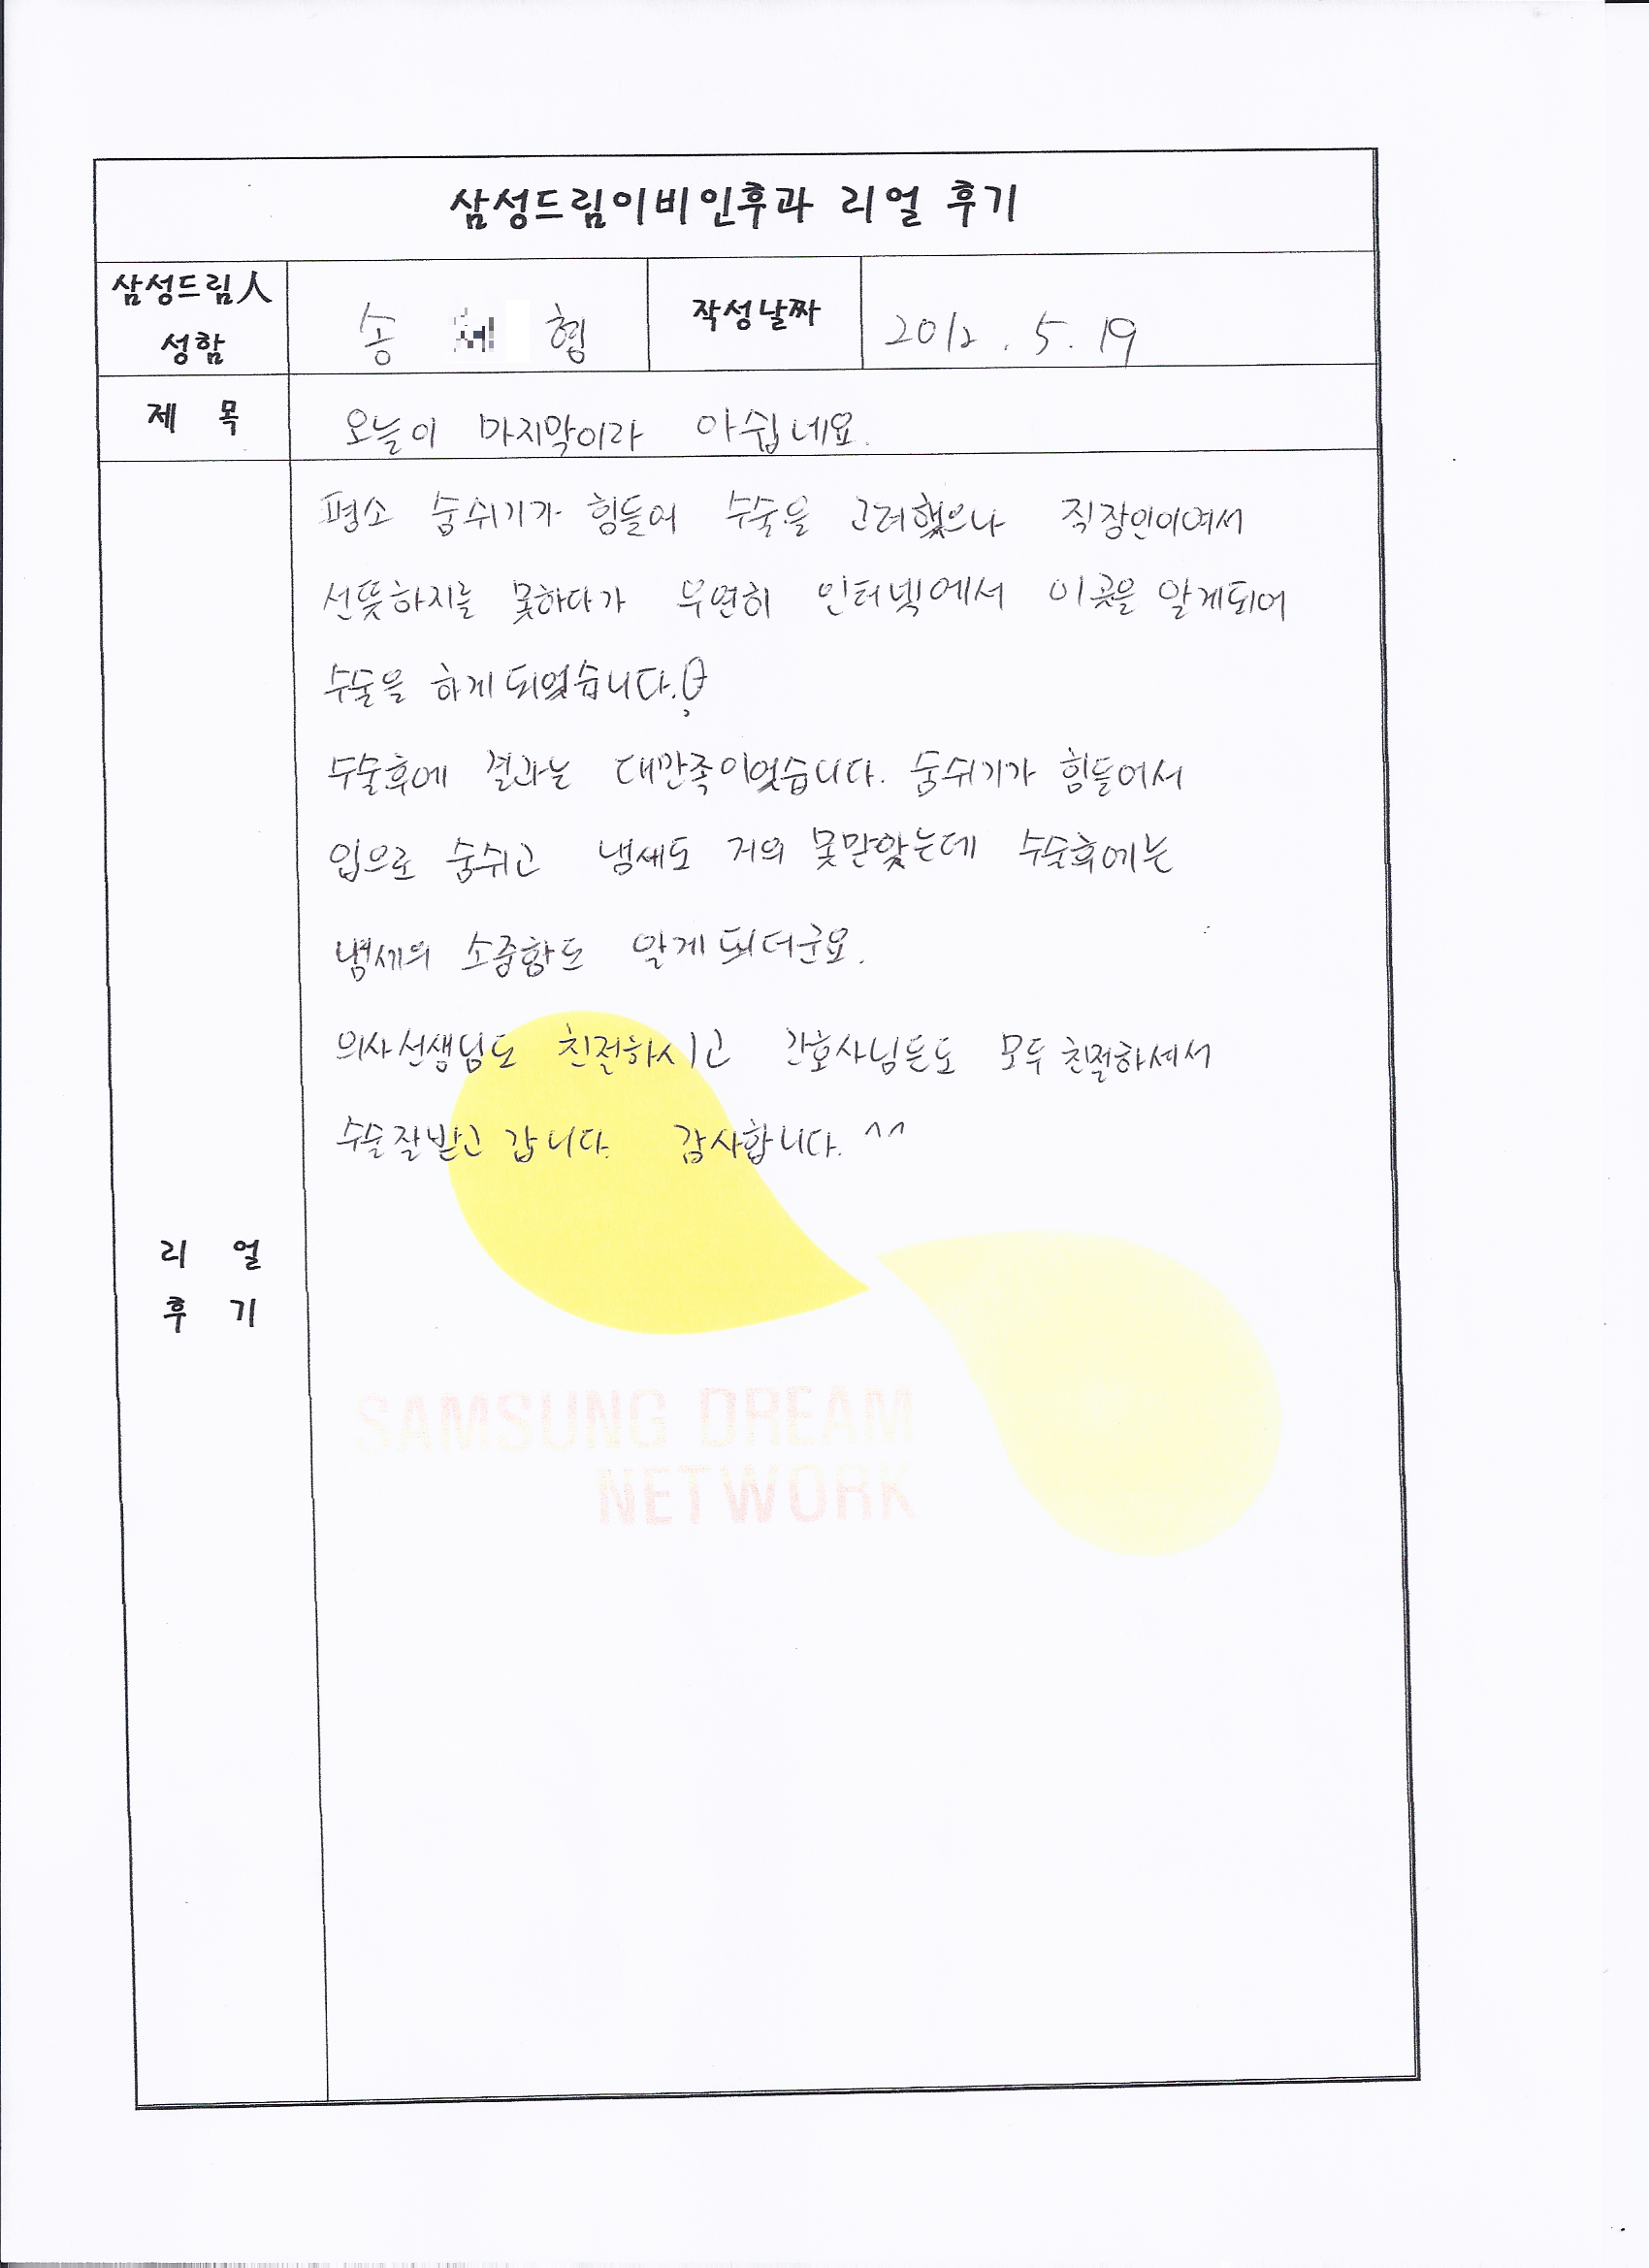 삼성드림이비인후과 리얼 후기
삼성드림人
성함
송 협
작성날짜
2012. 5. 19
제 목
오늘이 마지막이라 아쉽네요.
평소 숨쉬기가 힘들어 수술을 고려했으나 직장인이여서
선뜻하지를 못하다가 우연히 인터넷에서 이곳을 알게되어
수술을 하게 되었습니다.
수술후에 결과는 대만족이었습니다. 숨쉬기가 힘들어서
입으로 숨쉬고 냄새도 거의 못맡았는데 수술후에는
냄세의 소중함도 알게 되더군요.
의사선생님도 친절하시고 간호사님들도 모두 친절하셔서
수술잘받고 갑니다. 감사합니다. ^^
리 얼
후 기
SAMSUNG DREAM
NETWORK